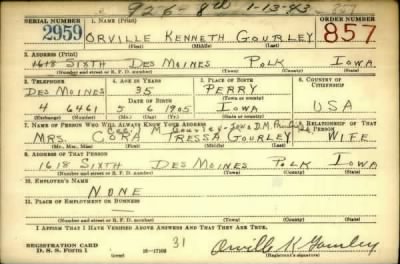 926 - 8th 1-13-43 857
SERIAL NUMBER
1. NAME (Print)
ORDER NUMBER
2959
ORVILLE KENNETH GOURLEY
857
(First) (Middle) (Last)
3. ADDRESS (Print)
1618 SIXTH DES MOINES POLK IOWA
(Number and street or R. F. D. number) (Town) (County) (State)
4. TELEPHONE
5. AGE IN YEARS
6. PLACE OF BIRTH
COUNTRY OF CITIZENSHIP
DES MOINES
35
PERRY
DATE OF BIRTH
(Town or county)
4 6461
5 6 1905
IOWA
USA
(Exchange) (Number)
(Mo.) (Day) (Yr.)
(State or country)
7. NAME OF PERSON WHO WILL ALWAYS KNOW YOUR ADDRESS
RELATIONSHIP OF THAT PERSON
MRS. CORA TRESSA GOURLEY WIFE
(Mr., Mrs., Miss) (First) (Middle) (Last)
ADDRESS OF THAT PERSON
1618 SIXTH DES MOINES POLK IOWA
(Number and street or R. F. D. number) (Town) (County) (State)
EMPLOYER'S NAME
NONE
PLACE OF EMPLOYMENT OR BUSINESS
(Number and street or R. F. D. number) (Town) (County) (State)
I AFFIRM THAT I HAVE VERIFIED ABOVE ANSWERS AND THAT THEY ARE TRUE.
REGISTRATION CARD
D. S. S. Form 1
31
Orville K Gourley
(Registrant's signature)